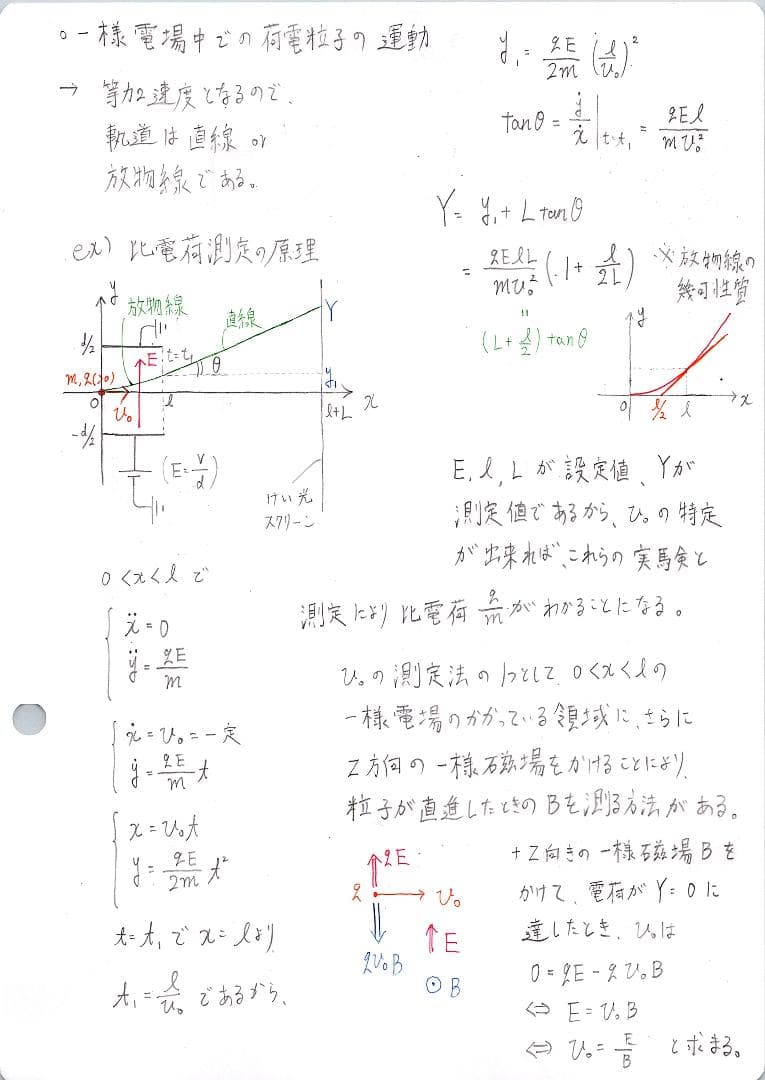 ○一様電場中での荷電粒子の運動
→ 等加速度となるので、
軌道は直線 or
放物線である。
ex) 比電荷測定の原理
y
放物線
直線
Y
d/2
E
t=t₁
θ
m, q(>0)
y₁
0
v₀
l
l+L
x
-d/2
(E=V/d)
けい光
スクリーン
0<x<l で
ẍ=0
ÿ=qE/m
ẋ=v₀=一定
ẏ=qE/m t
x=v₀t
y=qE/2m t²
t=t₁で x=lより
t₁=l/v₀ であるから、
y₁=qE/2m (l/v₀)²
tanθ=ẏ/ẋ|t=t₁=qEl/mv₀²
Y=y₁+L tanθ
=qElL/mv₀² (1+l/2L)
〃
(L+l/2)tanθ
※放物線の
幾何性質
y
0
l/2
l
x
E, l, L が設定値、Yが
測定値であるから、v₀の特定
が出来れば、これらの実験と
測定により比電荷 q/m がわかることになる。
v₀の測定法の1つとして、0<x<lの
一様電場のかかっている領域に、さらに
Z方向の一様磁場をかけることにより、
粒子が直進したときのBを測る方法がある。
qE
q
v₀
qv₀B
E
B
+Z向きの一様磁場Bを
かけて、電荷がY=0に
達したとき、v₀は
0=qE-qv₀B
⇔ E=v₀B
⇔ v₀=E/B と求まる。